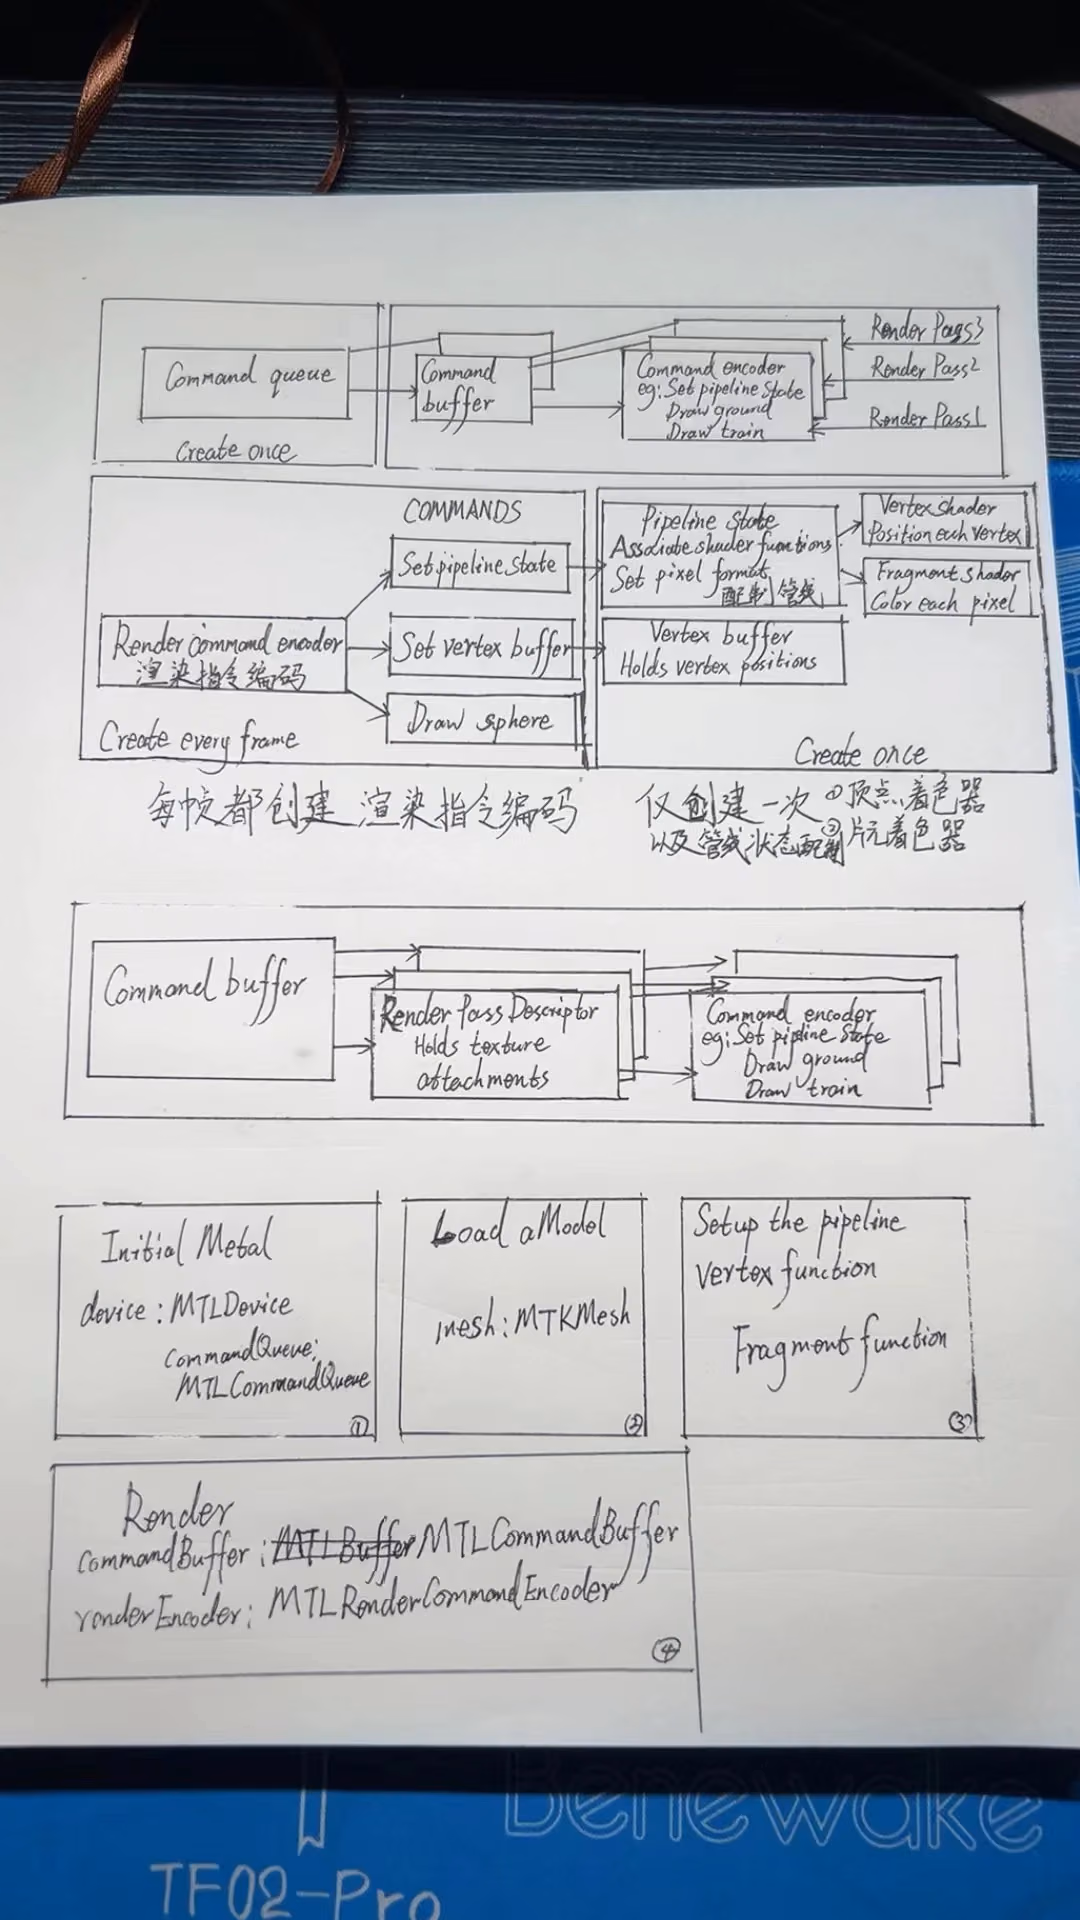 Command queue
Create once
Command
buffer
Command encoder
eg: Set pipeline State
Draw ground
Draw train
Render Pass3
Render Pass2
Render Pass1
COMMANDS
Render command encoder
渲染指令编码
Create every frame
Set pipeline state
Set vertex buffer
Draw sphere
Pipeline State
Associate shader functions
Set pixel format
配制管线
Vertex shader
Position each vertex
Fragment shader
Color each pixel
Vertex buffer
Holds vertex positions
Create once
每帧都创建渲染指令编码
仅创建一次①顶点着色器
以及管线状态配制②片元着色器
Command buffer
Render Pass Descriptor
Holds texture
attachments
Command encoder
eg: Set pipeline State
Draw ground
Draw train
Initial Metal
device: MTLDevice
CommandQueue:
MTLCommandQueue
①
Load a Model
mesh: MTKMesh
②
Setup the pipeline
Vertex function
Fragment function
③
Render
CommandBuffer: MTLBuffer MTLCommandBuffer
renderEncoder: MTLRenderCommandEncoder
④
Benewake
TF02-Pro